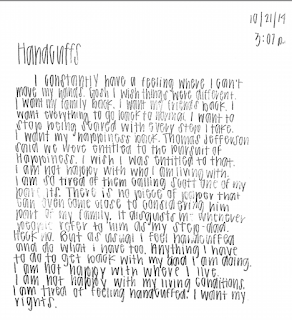 10/21/19
3:07 p.
Handcuffs
I constantly have a feeling where I can't
move my hands. Gosh I wish things were different.
I want my family back. I want my friends back. I
want everything to go back to normal. I want to
stop being scared with every step I take.
I want my happiness back. Thomas Jefferson
said we were entitled to the pursuit of
Happiness. I wish I was entitled to that.
I am not happy with who I am living with.
I am so tired of them calling scott one of my
There is no piece of paper that
can even come close to considering him
part of my family. It disgusts me whenever
people refer to him as my step-dad.
Heck no. But as usual I feel handcuffed
and do what I have to. Anything I have
to do to get back with my dad I am doing.
I am not happy with where I live.
I am not happy with my living conditions.
I am tired of feeling handcuffed. I want my
rights.